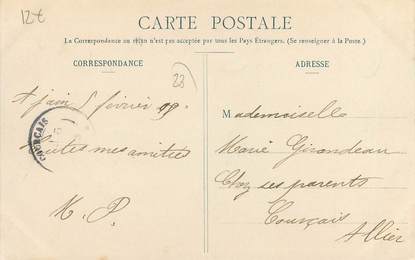 12€
CARTE POSTALE
La Correspondance au recto n'est pas acceptée par tous les Pays Étrangers. (Se renseigner à la Poste.)
CORRESPONDANCE
23
5 février 09
Toutes mes amitiés
M. P.
COURÇAIS
ADRESSE
Mademoiselle
Marie Girondeau
Chez ses parents
Courçais
Allier